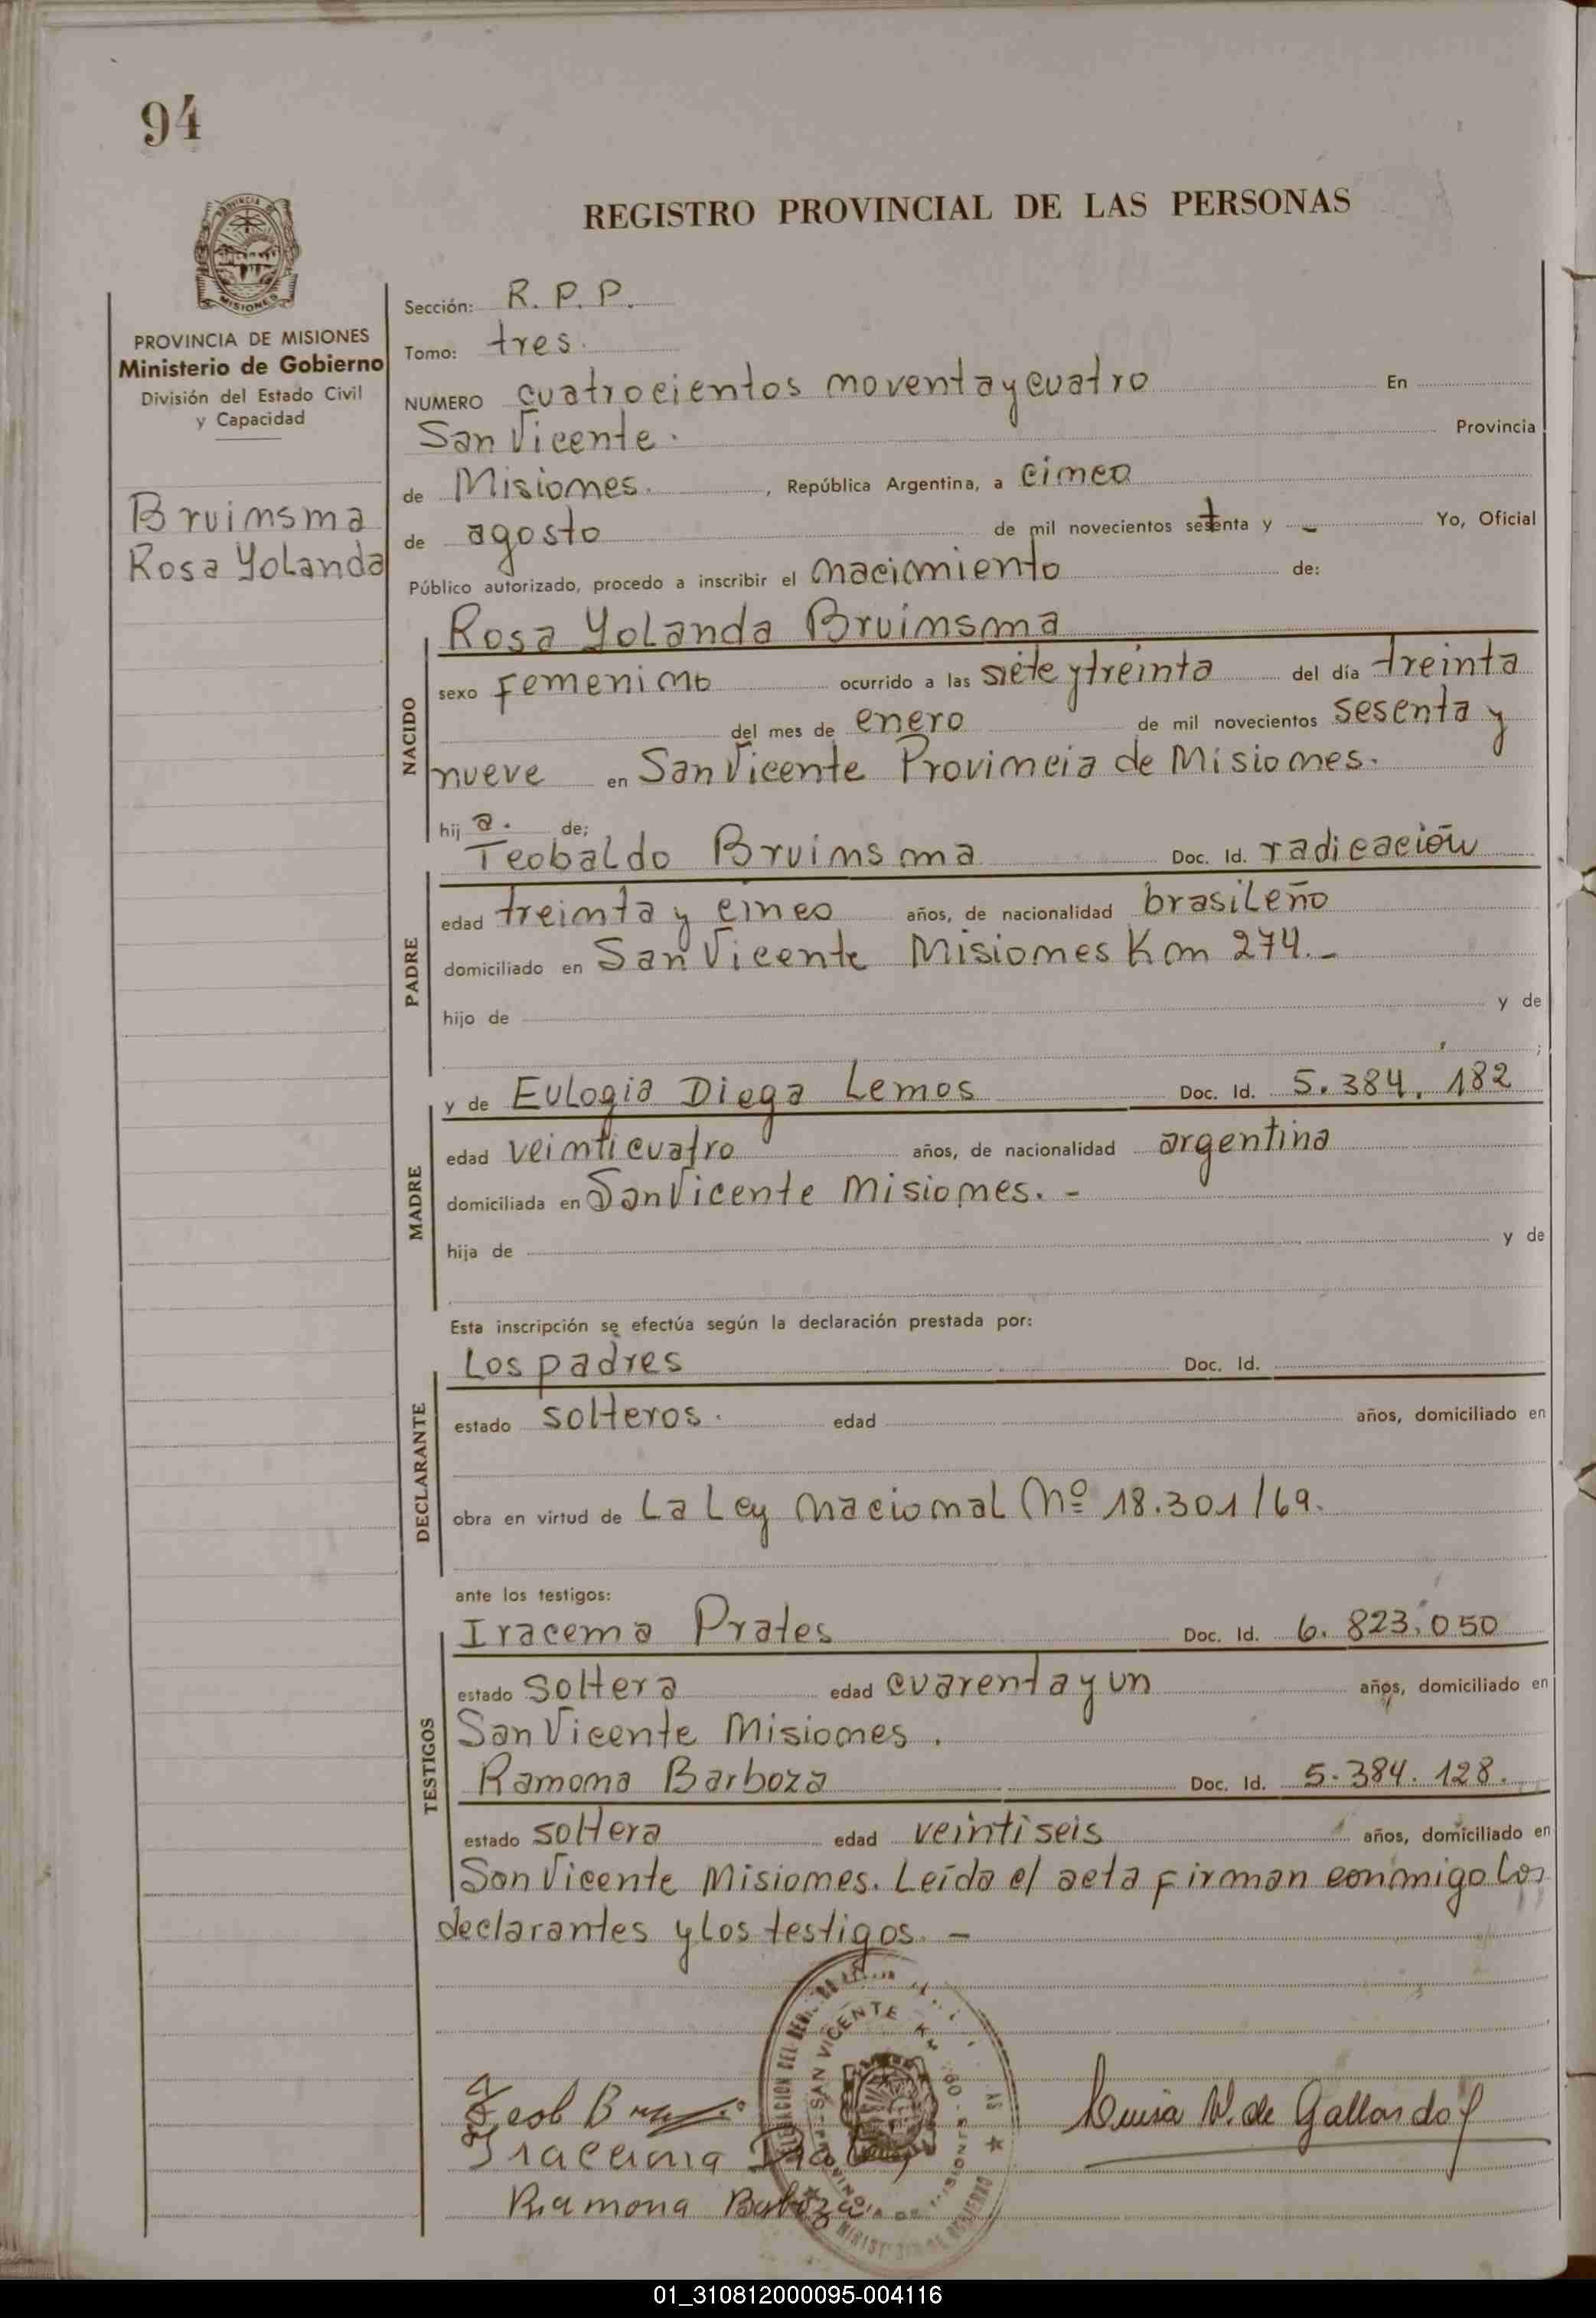 94
REGISTRO PROVINCIAL DE LAS PERSONAS
PROVINCIA DE MISIONES
Ministerio de Gobierno
División del Estado Civil
y Capacidad
Bruinsma
Rosa Yolanda
Sección: R. P. P.
Tomo: tres.
NUMERO cuatrocientos noventa y cuatro En
San Vicente. Provincia
de Misiones. , República Argentina, a cinco
de agosto de mil novecientos setenta y - Yo, Oficial
Público autorizado, procedo a inscribir el nacimiento de:
NACIDO
Rosa Yolanda Bruinsma
sexo femenino ocurrido a las siete y treinta del día treinta
del mes de enero de mil novecientos sesenta y
nueve en San Vicente Provincia de Misiones.
hij a. de;
PADRE
Teobaldo Bruinsma Doc. Id. radicación
edad treinta y cinco años, de nacionalidad brasileño
domiciliado en San Vicente Misiones Km 274. -
hijo de y de
;
MADRE
y de Eulogia Diega Lemos Doc. Id. 5.384.182
edad veinticuatro años, de nacionalidad argentina
domiciliada en San Vicente Misiones. -
hija de y de
Esta inscripción se efectúa según la declaración prestada por:
DECLARANTE
Los padres Doc. Id.
estado solteros. edad años, domiciliado en
obra en virtud de La Ley Nacional Nº 18.301/69.
ante los testigos:
TESTIGOS
Iracema Prates Doc. Id. 6.823.050
estado soltera edad cuarenta y un años, domiciliado en
San Vicente Misiones.
Ramona Barboza Doc. Id. 5.384.128.
estado soltera edad veintiseis años, domiciliado en
San Vicente Misiones. Leída el acta firman conmigo los
declarantes y los testigos. -
SAN VICENTE
Teob
Luisa W. de Gallardo
Iracema
Ramona
01_310812000095-004116